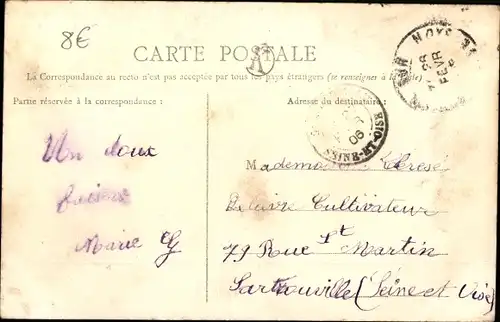 8€
CARTE POSTALE
A
La Correspondance au recto n'est pas acceptée par tous les pays étrangers (se renseigner à la
Partie réservée à la correspondance :
Adresse du destinataire :
28
FEVR
06
SEINE-ET-OISE
Un doux
Marie
Mademoiselle Thérèse
Cultivateur
79 Rue St Martin
Sartrouville (Seine et Oise)